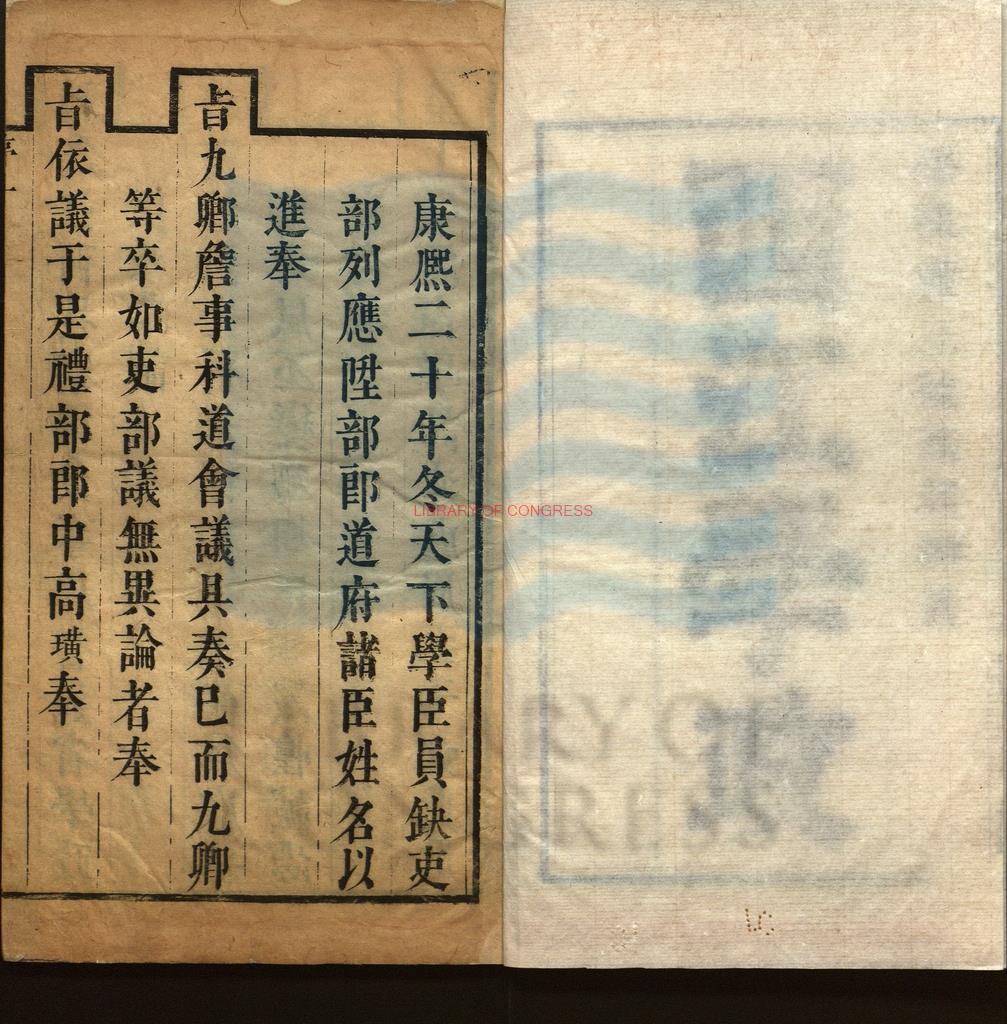 康熈二十年冬天下學臣員缺吏
部列應陞部郎道府諸臣姓名以
進奉
旨九卿詹事科道會議具奏已而九卿
等卒如吏部議無異論者奉
旨依議于是禮部郎中高璜奉
LIBRARY OF CONGRESS